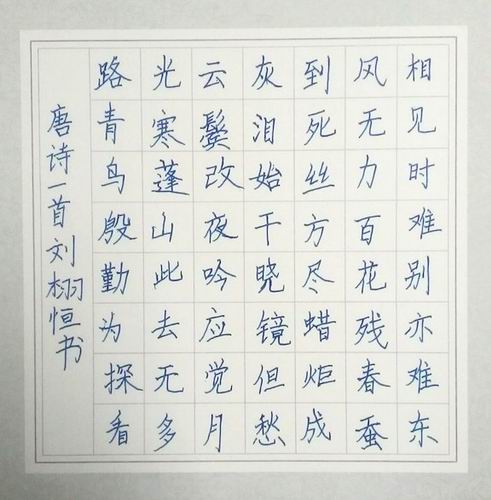 相见时难别亦难东
风无力百花残春蚕
到死丝方尽蜡炬成
灰泪始干晓镜但愁
云鬓改夜吟应觉月
光寒蓬山此去无多
路青鸟殷勤为探看
唐诗一首刘栩恒书